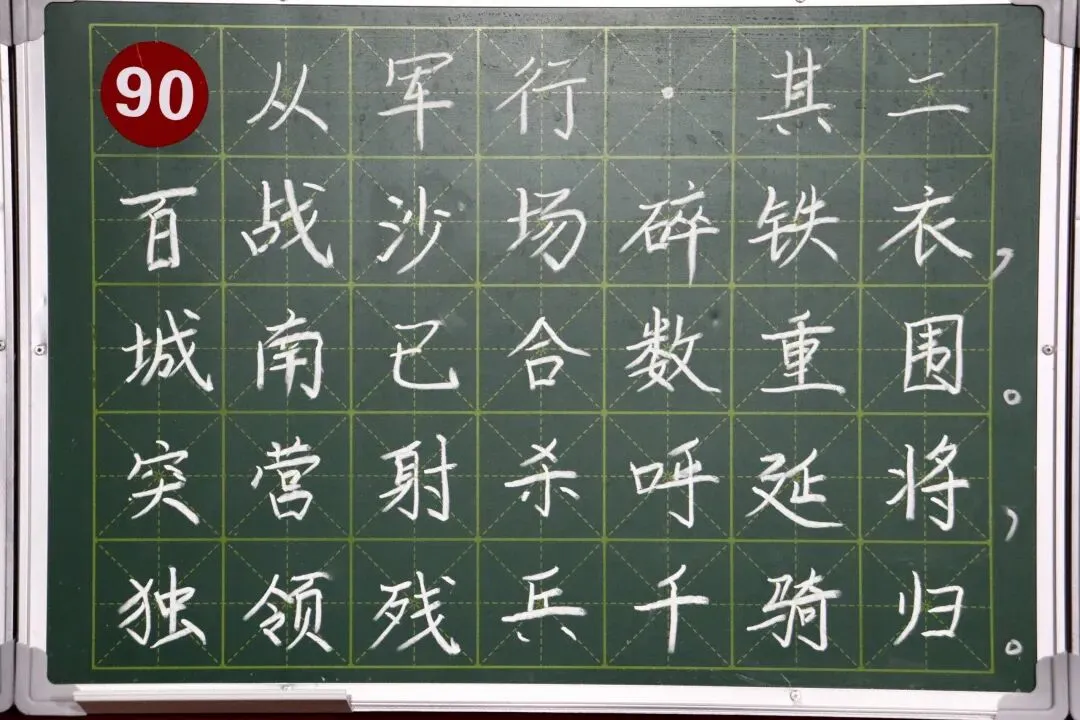 90 从军行·其二
百战沙场碎铁衣,
城南已合数重围。
突营射杀呼延将,
独领残兵千骑归。